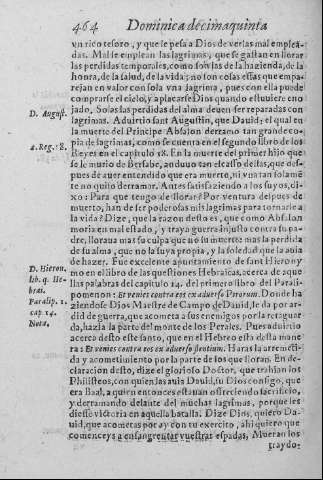 464 Dominica decimaquinta
vn rico tesoro, y que le pesa a Dios de verlas mal emplea-
das. Mal se emplean las lagrimas, que se gastan en llorar
las perdidas temporales, como son las de la hazienda, de la
honra, de la salud, de la vida; no son cosas essas que empa-
rejan en valor con sola vna lagrima, pues con ella puede
comprarse el cielo, y aplacarse Dios quando estuuiere eno
jado, Solas las perdidas del alma deuen ser reparadas con
D. August.
lagrimas. Aduirtio sant Augustin, que Dauid; el qual en
la muerte del Principe Absalon derramo tan grande co-
pia de lagrimas, como se cuenta en el segundo libro de los
2. Reg. 18.
Reyes en el capitulo 18. En la muerte del primer hijo que
se le murio de Bersabe, anduuo tan escasso dellas, que des-
pues de auer entendido que era muerto, ni vna tan solamē
te no quiso derramar. Antes satisfaziendo a los suyos, di-
xo: Para que tengo de llorar? Por ventura despues de
muerto, han de ser poderosas mis lagrimas para tornarle a
la vida? Dize, que la razon desto es, que como Absalon
moria en mal estado, y traya guerra injusta contra su pa-
dre, lloraua mas su culpa que no su muerte mas la perdida
de su alma, que no la suya propia, y la soledad que la auia
de hazer. Fue excelente apuntamiento de sant Hieronymo
D. Hieron.
lib. q. He-
bras.
en el libro de las questiones Hebraicas, acerca de aque
llas palabras del capitulo 14. del primero libro del Parali-
Paralip. 1.
cap. 14.
pomenon: Et venies contra eos ex aduerso Pyrorum. Donde ha
ziendose Dios Maestre de Campo de Dauid, le da por ar-
Nota.
did de guerra, que acometa a sus enemigos por la retagua
da, hazia la parte del monte de los Perales. Pues aduirtio
acerca desto este santo, que en el Hebreo esta desta mane
ra: Et venies contra eos ex aduerso flentium. Haras la arremeti-
da y acometimiento por la parte de los que lloran. En de-
claracion desto, dize el glorioso Doctor, que trahian los
Philisteos, con quien las auia Dauid, su Dios consigo, que
era Baal, a quien entonces estauan offreciendo sacrificio,
y derramando delante del muchas lagrimas, porque les
diesse victoria en aquella batalla. Dize Dios, quiero Da-
uid, que acometas por ay con tu exercito, ahi quiero que
comenceys a ensangrentar vuestras espadas, Mueran los
traydo-